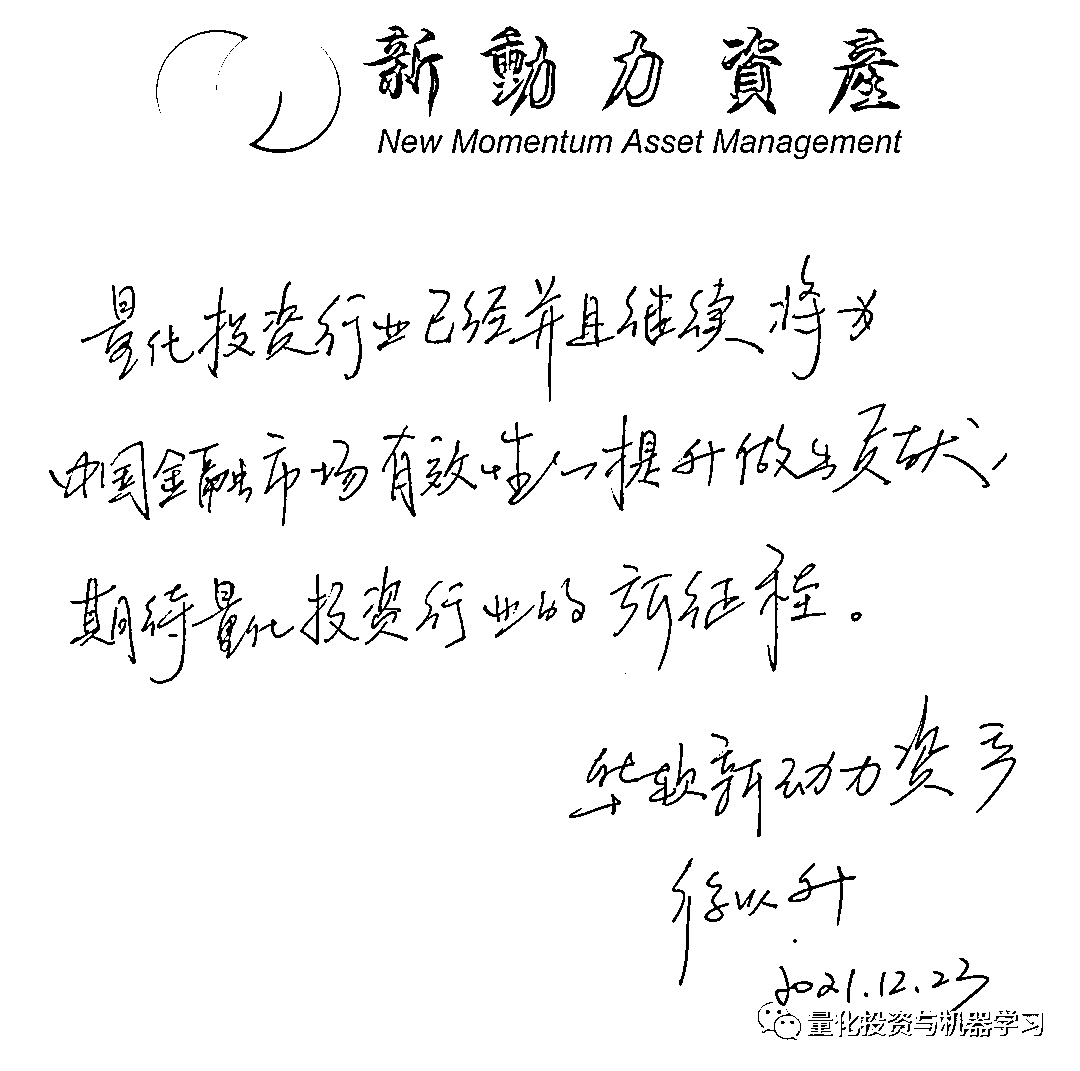 新動力資產
New Momentum Asset Management
量化投资行业已经并且继续将为
中国金融市场有效性提升做出贡献,
期待量化投资行业的新征程。
华软新动力资产
徐以升
2021.12.23
量化投资与机器学习